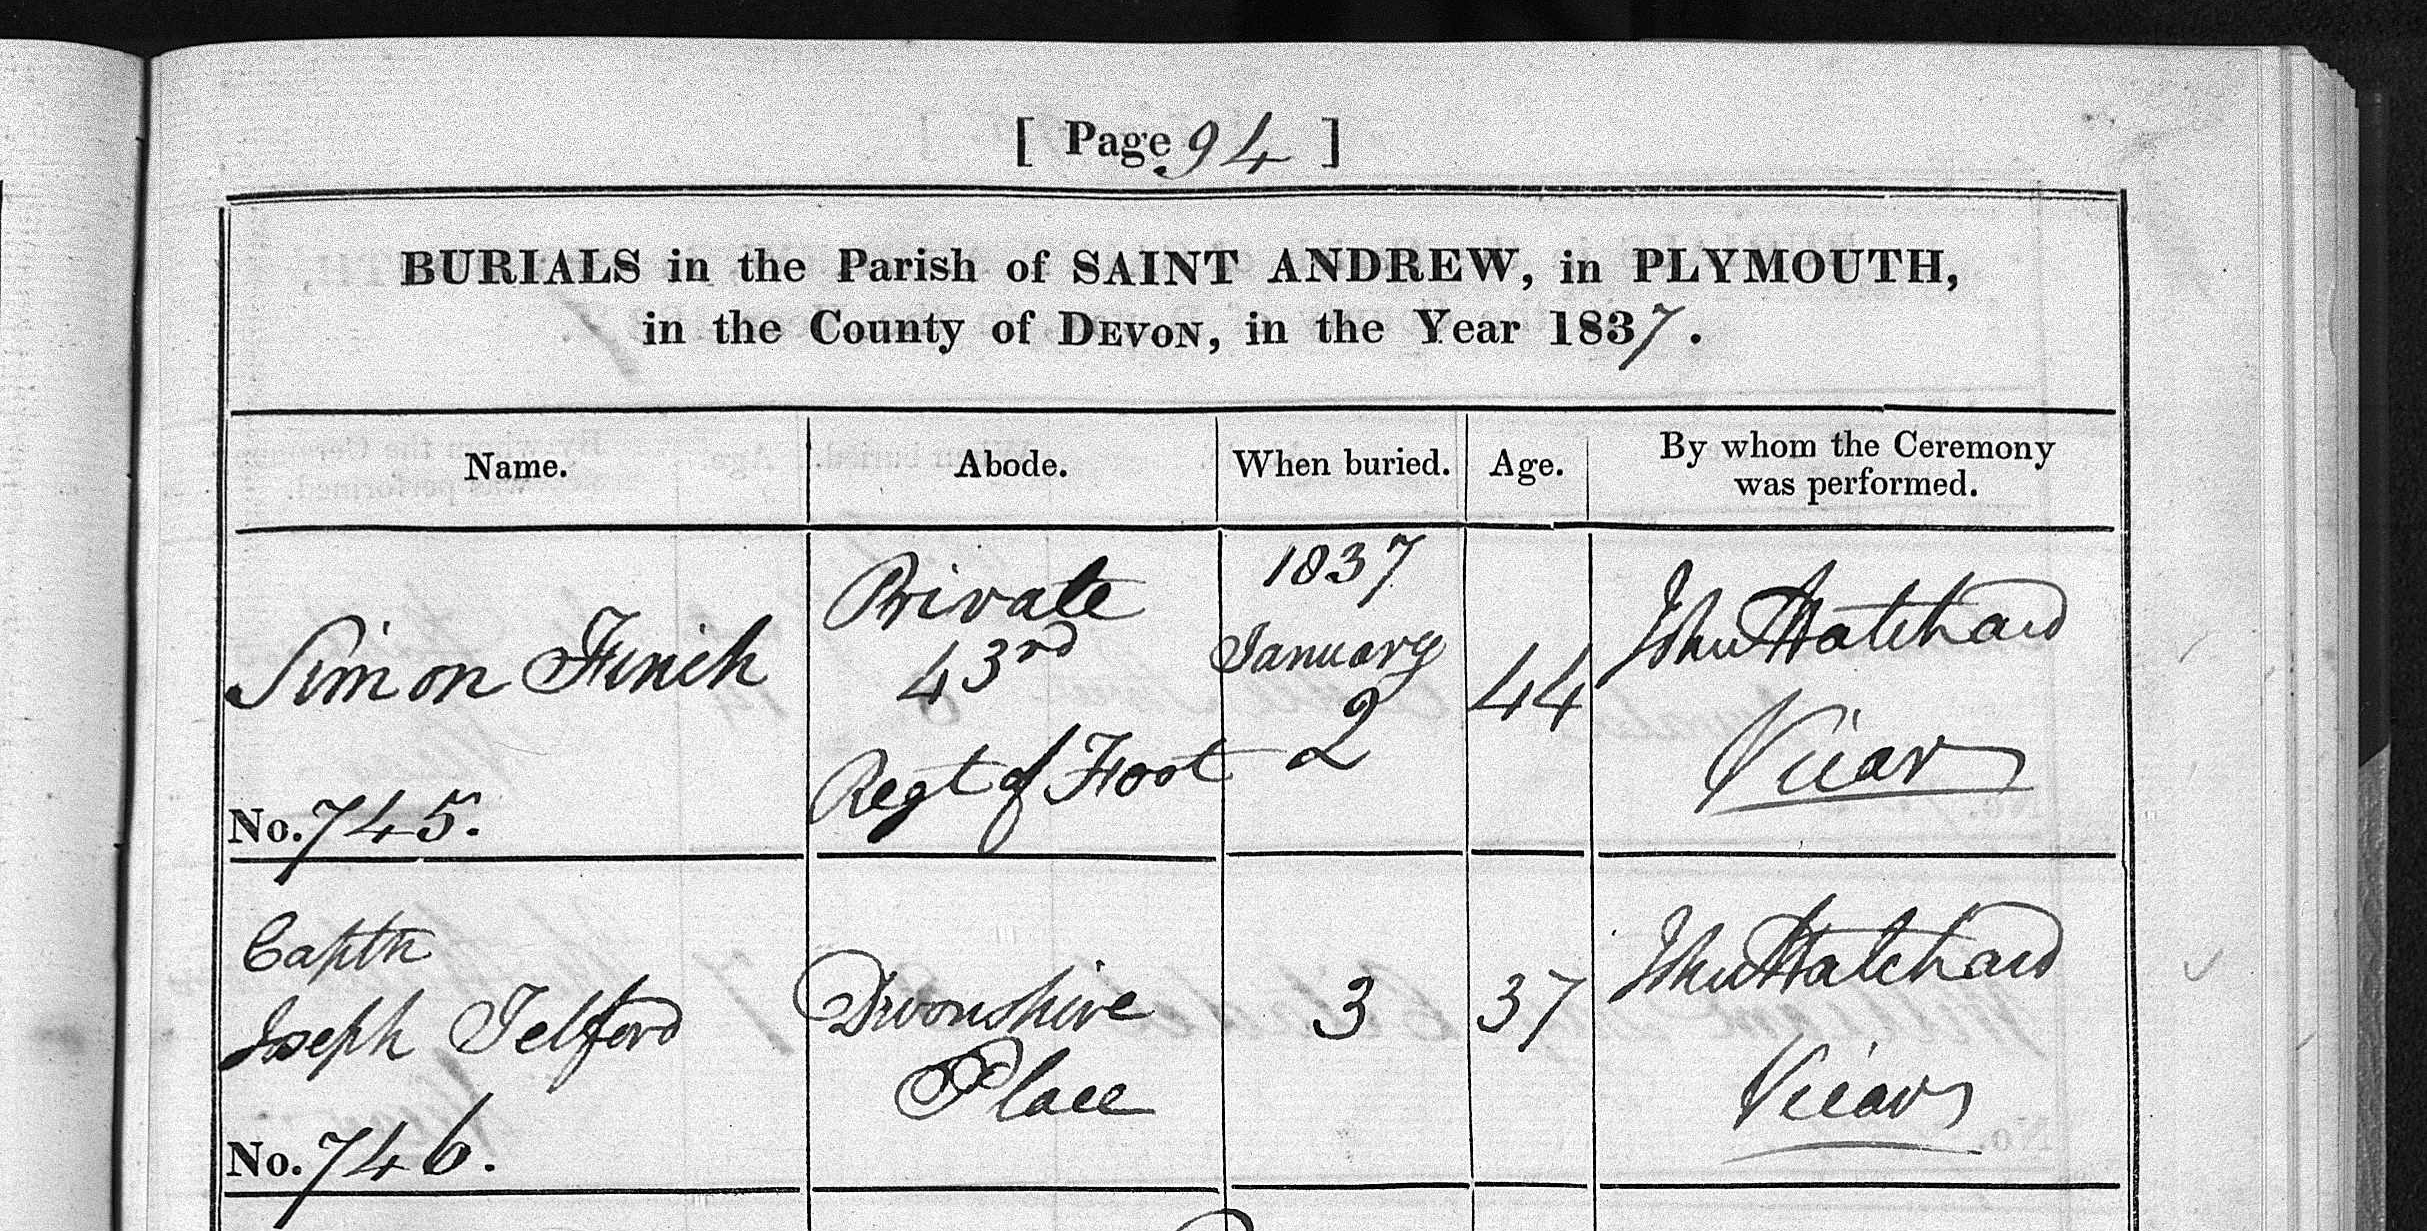 [ Page 94 ]
BURIALS in the Parish of SAINT ANDREW, in PLYMOUTH,
in the County of DEVON, in the Year 1837.
Name. Abode. When buried. Age. By whom the Ceremony
was performed.
Simon Finch
No. 745.
Private
43rd
Regt of Foot
1837
January
2
44
John Hatchard
Vicar
Captn
Joseph Telford
No. 746.
Devonshire
Place
3
37
John Hatchard
Vicar